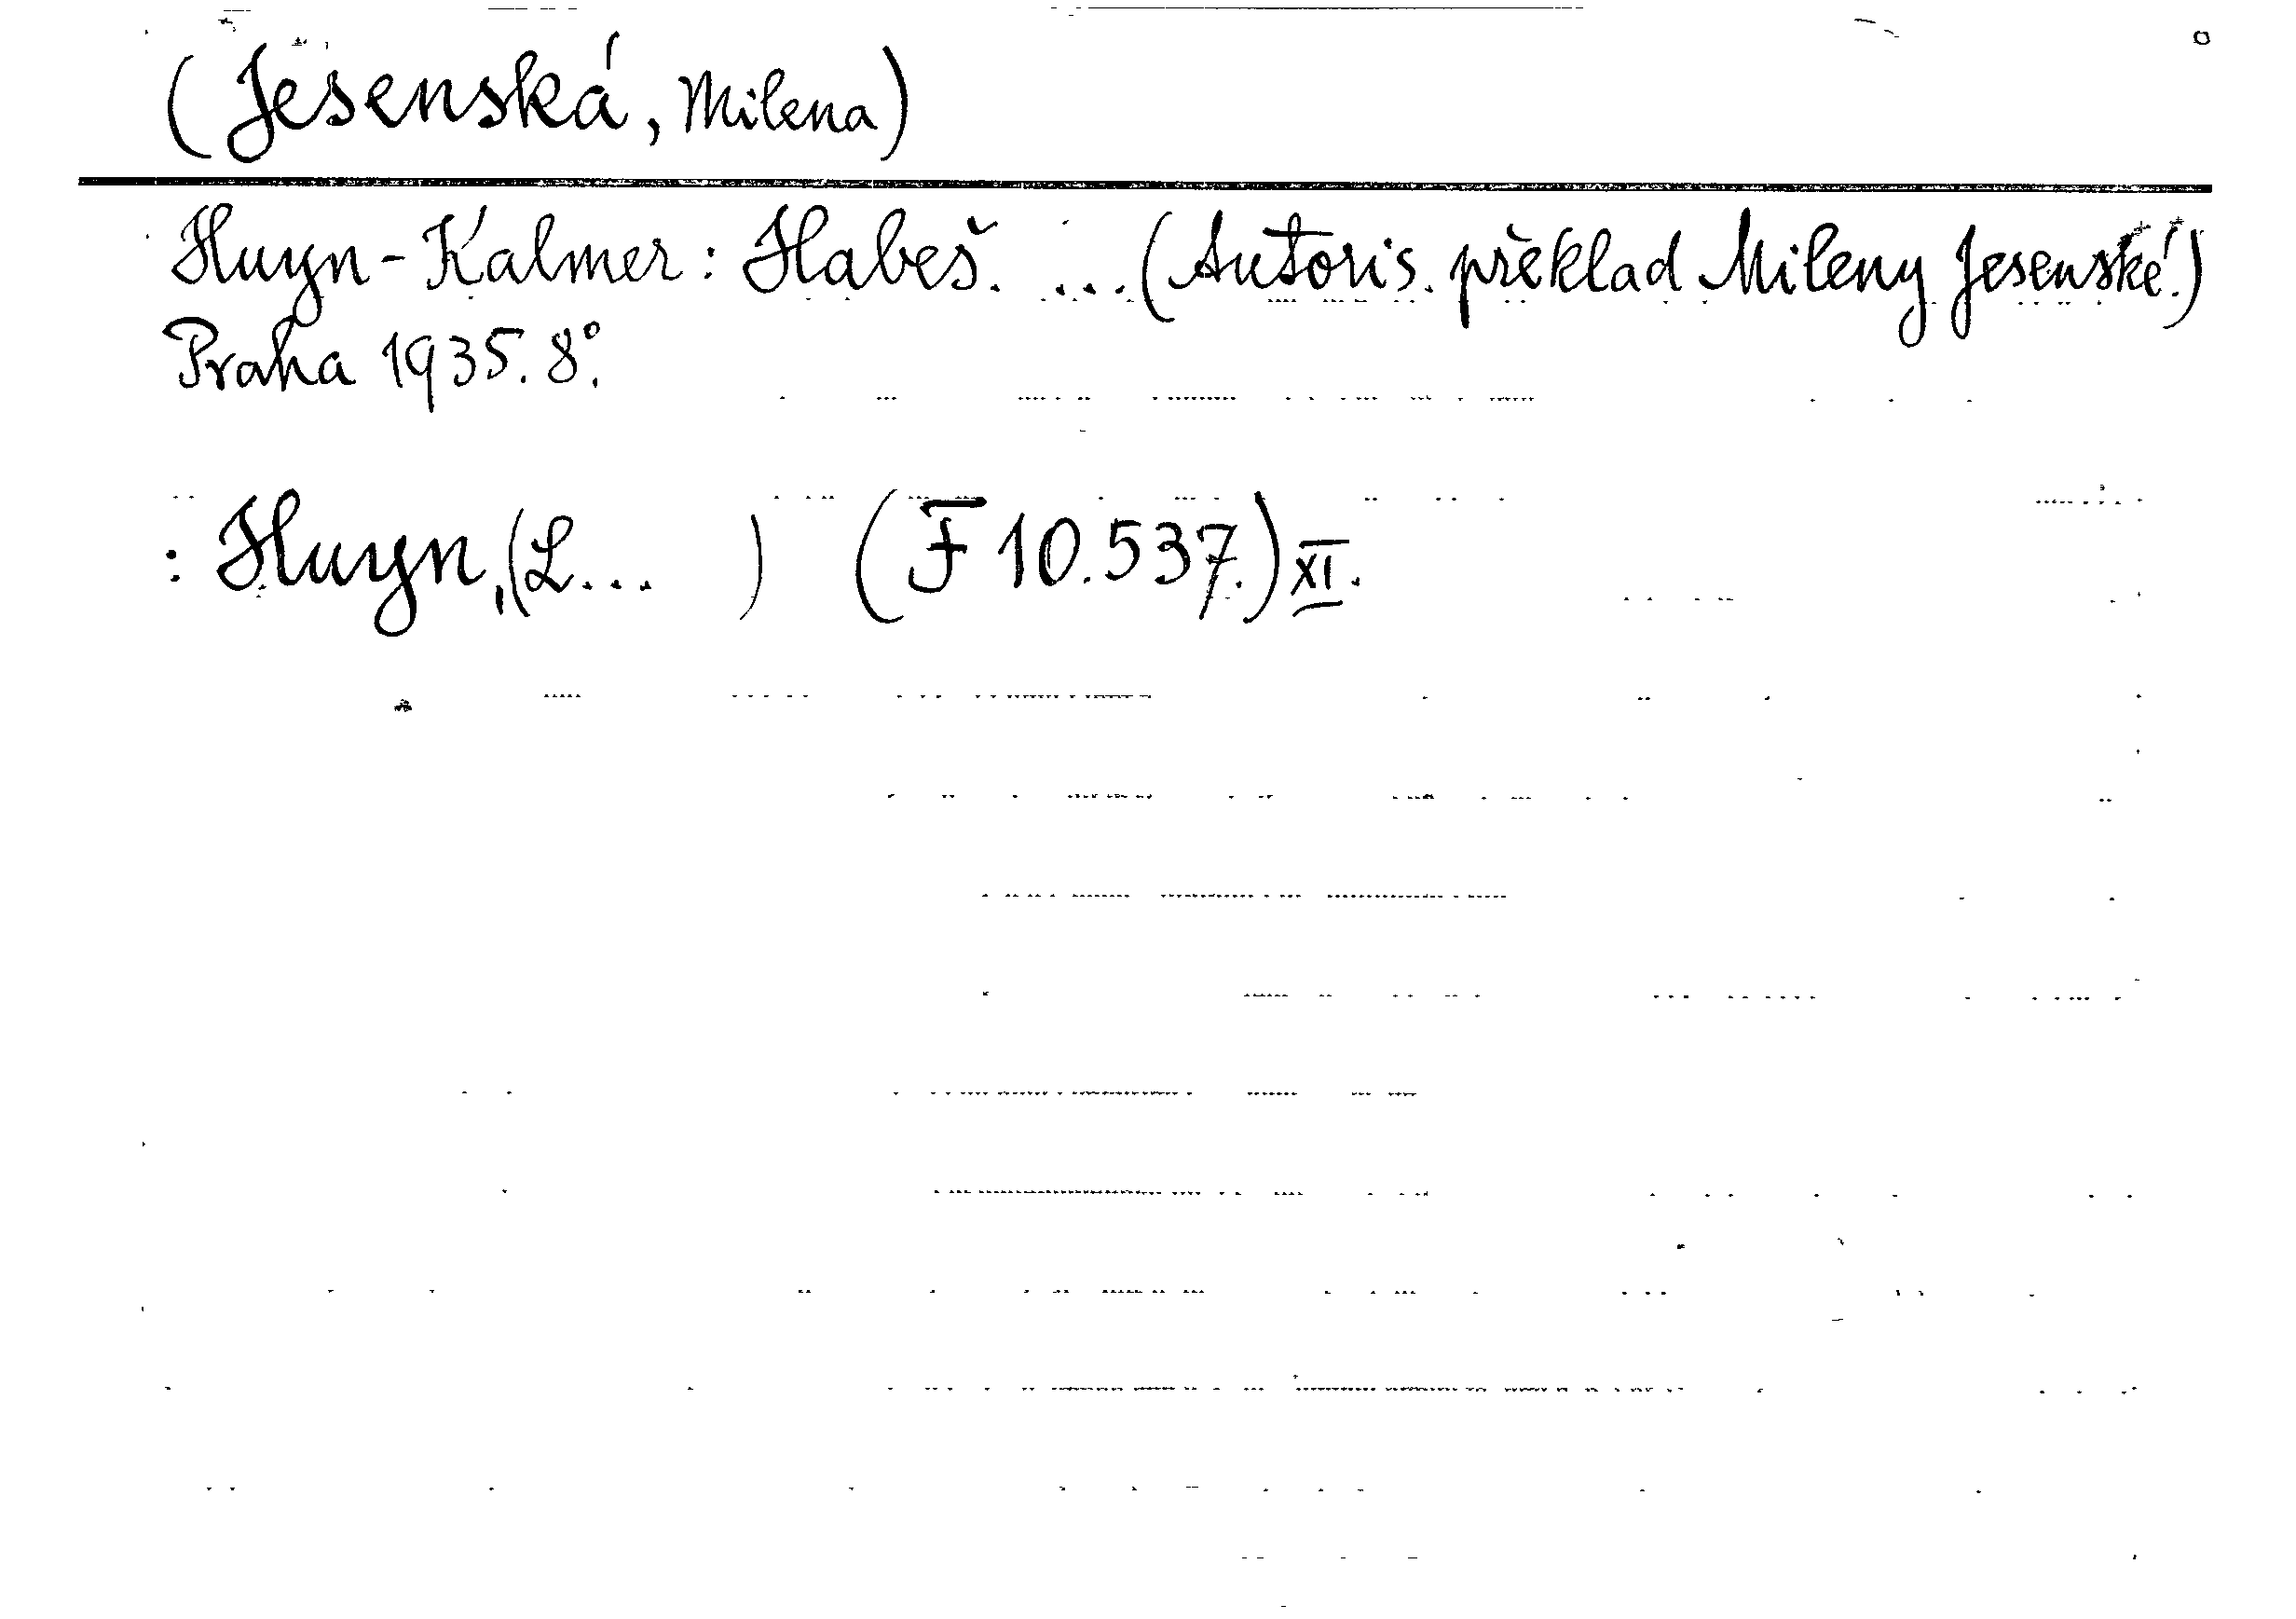 (Jesenská, Milena)
Huyn-Kalmer: Habeš. ... (Autoris. překlad Mileny Jesenské.)
Praha 1935. 8°.
: Huyn, (L... ) (F 10.537.) XI.